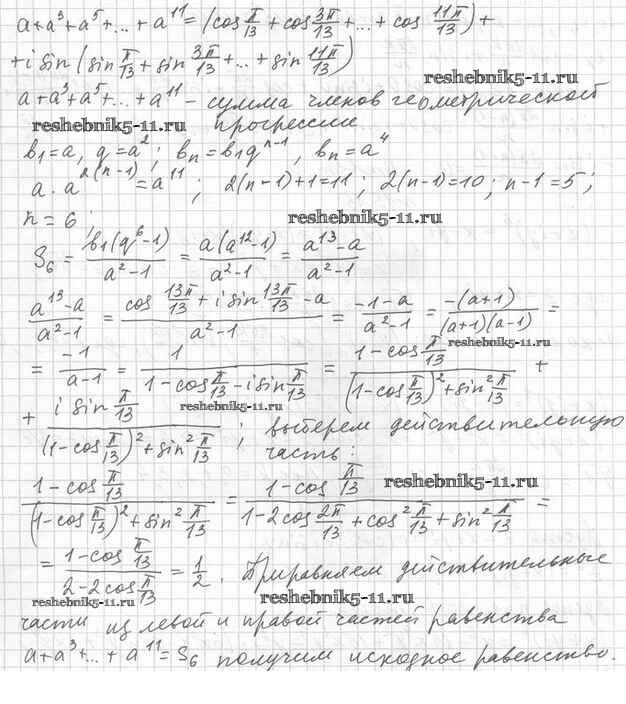 a+a³+a⁵+...+a¹¹=(cos π/13 + cos 3π/13 +...+ cos 11π/13)+
+i sin(sin π/13 + sin 3π/13 +...+ sin 11π/13)
reshebnik5-11.ru
a+a³+a⁵+...+a¹¹ - сумма членов геометрической
reshebnik5-11.ru прогрессии
b₁=a, q=a²; bₙ=b₁qⁿ⁻¹, bₙ=a⁴
a·a²⁽ⁿ⁻¹⁾=a¹¹; 2(n-1)+1=11; 2(n-1)=10; n-1=5;
n=6; reshebnik5-11.ru
S₆ = b₁(q⁶-1)/(a²-1) = a(a¹²-1)/(a²-1) = (a¹³-a)/(a²-1)
(a¹³-a)/(a²-1) = (cos 13π/13 + i sin 13π/13 - a)/(a²-1) = (-1-a)/(a²-1) = -(a+1)/((a+1)(a-1)) =
reshebnik5-11.ru
= -1/(a-1) = 1/(1-cos π/13 - i sin π/13) = (1-cos π/13)/((1-cos π/13)²+sin² π/13) +
reshebnik5-11.ru
+ (i sin π/13)/((1-cos π/13)²+sin² π/13); выберем действительную
часть:
reshebnik5-11.ru
(1-cos π/13)/((1-cos π/13)²+sin² π/13) = (1-cos π/13)/(1-2cos 2π/13 + cos² π/13 + sin² π/13) =
= (1-cos π/13)/(2-2cos π/13) = 1/2. Приравняем действительные
reshebnik5-11.ru reshebnik5-11.ru
части из левой и правой частей равенства
a+a³+...+a¹¹=S₆ получим исходное равенство.